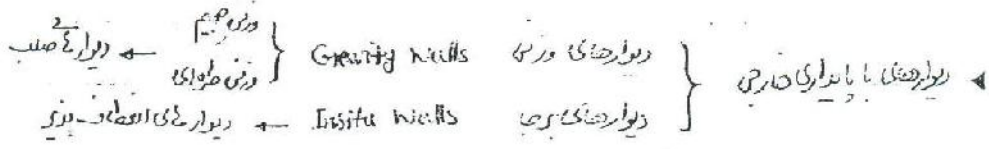 ◄ دیوارهای با پایداری خارجی
دیوارهای وزنی Gravity Walls
وزنی حجیم
وزنی طره‌ای
← دیوارهای صلب
دیوارهای برجا Insitu Walls ← دیوارهای انعطاف پذیر